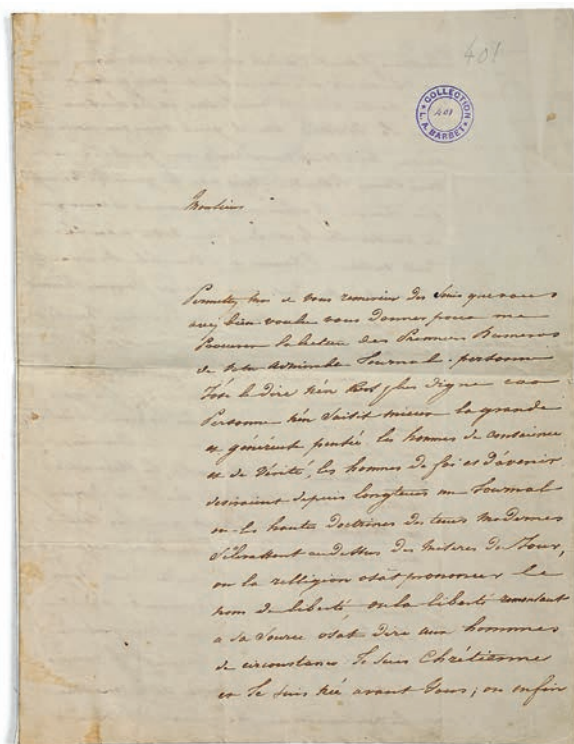 401
COLLECTION
401
L. A. BARBET
Monsieur
Permettez moi de vous remercier des soins que vous
avez bien voulu vous donner pour me
Procurer la lecture des Premiers Numeros
de votre Admirable Journal. personne
J'ose le dire n'en est plus digne car
Personne n'en saisit mieux la grande
et généreuse pensée. les hommes de conscience
et de Vérité, les hommes de foi et d'avenir
desiraient depuis longtems un Journal
ou les hautes doctrines des tems modernes
s'élevassent audessus des miseres du Jour,
ou la relligion osat prononcer le
nom de liberté ou la liberté remontant
a sa source osat dire aux hommes
de circonstance Je suis Chrétienne
et Je suis née avant Vous; ou enfin